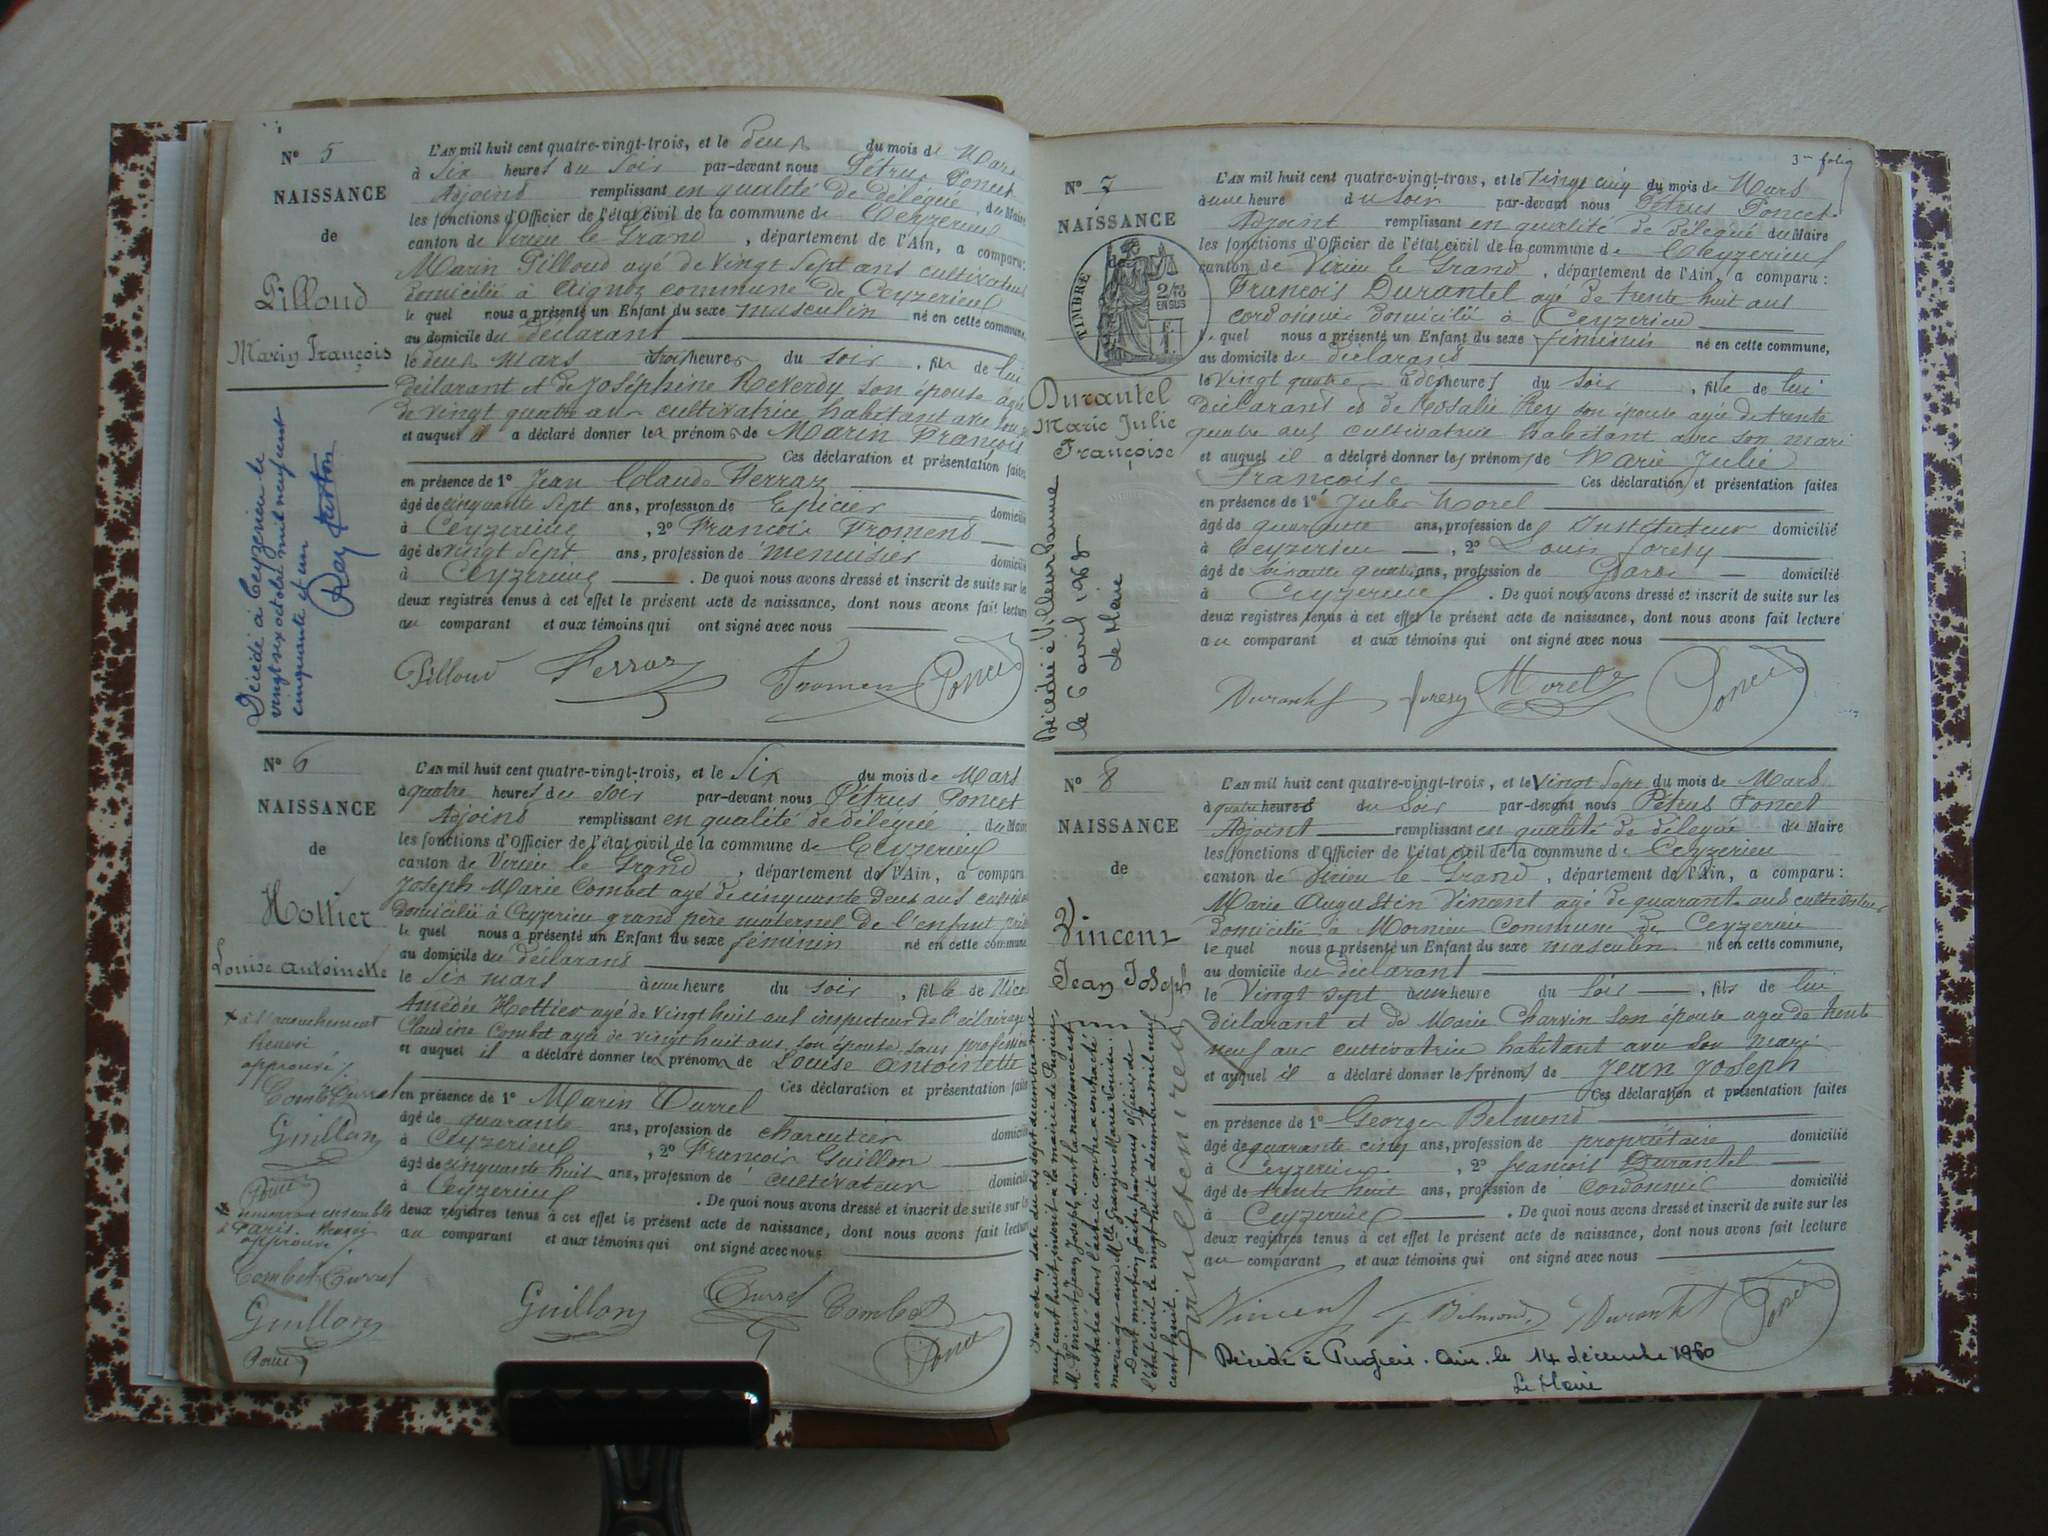 N° 5
NAISSANCE
de
Pilloud
Marin François
Décédé à Ceyzerieu le
vingt six octobre mil neuf cent
cinquante et un
L'AN mil huit cent quatre-vingt-trois, et le deux du mois de Mars
à six heures du soir par-devant nous Pétrus Poncet
Adjoint remplissant en qualité de délégué du Maire
les fonctions d'Officier de l'état civil de la commune de Ceyzerieu
canton de Virieu le Grand, département de l'Ain, a comparu :
Marin Pilloud agé de vingt sept ans cultivateur
domicilié à Aignoz commune de Ceyzerieu
le quel nous a présenté un Enfant du sexe masculin né en cette commune,
au domicile du déclarant
le deux mars à trois heures du soir, fils de lui
déclarant et de Joséphine Reverdy son épouse agée
de vingt quatre ans cultivatrice habitant avec son
et auquel il a déclaré donner les prénoms de Marin François
Ces déclaration et présentation faites
en présence de 1° Jean Claude Ferraz
âgé de cinquante sept ans, profession de Epicier domicilié
à Ceyzerieu, 2° François Froment
âgé de vingt sept ans, profession de menuisier domicilié
à Ceyzerieu. De quoi nous avons dressé et inscrit de suite sur les
deux registres tenus à cet effet le présent acte de naissance, dont nous avons fait lecture
au comparant et aux témoins qui ont signé avec nous
Pilloud Ferraz Froment Poncet
N° 6
NAISSANCE
de
Hottier
Louise Antoinette
approuvé
Combet Currel
Guillon
Poncet
demeurant ensemble
à Paris. Renvoi
approuvé
Combet Currel
Guillon
Poncet
L'AN mil huit cent quatre-vingt-trois, et le six du mois de Mars
à quatre heures du soir par-devant nous Pétrus Poncet
Adjoint remplissant en qualité de délégué du Maire
les fonctions d'Officier de l'état civil de la commune de Ceyzerieu
canton de Virieu le Grand, département de l'Ain, a comparu
Joseph Marie Combet agé de cinquante deux ans cultivateur
domicilié à Ceyzerieu grand père maternel de l'enfant
le quel nous a présenté un Enfant du sexe féminin né en cette commune
au domicile du déclarant
le six mars à une heure du soir, fille de
Amédée Hottier agé de vingt huit ans inspecteur de
Claudine Combet agée de vingt huit ans son épouse sans profession
et auquel il a déclaré donner les prénoms de Louise Antoinette
Ces déclaration et présentation faites
en présence de 1° Marin Currel
âgé de quarante ans, profession de charcutier domicilié
à Ceyzerieu, 2° François Guillon
âgé de cinquante huit ans, profession de cultivateur domicilié
à Ceyzerieu. De quoi nous avons dressé et inscrit de suite sur les
deux registres tenus à cet effet le présent acte de naissance, dont nous avons fait lecture
au comparant et aux témoins qui ont signé avec nous
Guillon Currel Combet
Poncet
3me folio
N° 7
NAISSANCE
de
TIMBRE
EN SUS
Durantel
Marie Julie
Françoise
Décédée à Villeurbanne
le 6 avril 1968
Le Maire
L'AN mil huit cent quatre-vingt-trois, et le vingt cinq du mois de Mars
à une heure du soir par-devant nous Pétrus Poncet
Adjoint remplissant en qualité de délégué du Maire
les fonctions d'Officier de l'état civil de la commune de Ceyzerieu
canton de Virieu le Grand, département de l'Ain, a comparu :
François Durantel agé de trente huit ans
cordonnier domicilié à Ceyzerieu
le quel nous a présenté un Enfant du sexe féminin né en cette commune,
au domicile du déclarant
le vingt quatre à dix heures du soir, fille de lui
déclarant et de Rosalie Rey son épouse agée de trente
quatre ans cultivatrice habitant avec son mari
et auquel il a déclaré donner les prénoms de Marie Julie
Françoise Ces déclaration et présentation faites
en présence de 1° Jules Morel
âgé de quarante ans, profession de Instituteur domicilié
à Ceyzerieu, 2° Louis Foresy
âgé de soixante quatre ans, profession de Garde domicilié
à Ceyzerieu. De quoi nous avons dressé et inscrit de suite sur les
deux registres tenus à cet effet le présent acte de naissance, dont nous avons fait lecture
au comparant et aux témoins qui ont signé avec nous
Durantel Foresy Morel Poncet
N° 8
NAISSANCE
de
Vincent
Jean Joseph
Par acte en date du dix sept décembre mil
neuf cent huit, inscrit à la mairie de Pugieu
M. Vincent Jean Joseph dont la naissance est
constatée dans l'acte ci contre a contracté
mariage avec Melle Grange Marie Louise.
Dont mention faite par nous officier de
l'état civil le vingt huit décembre mil neuf
cent huit.
L'AN mil huit cent quatre-vingt-trois, et le vingt sept du mois de Mars
à quatre heures du soir par-devant nous Pétrus Poncet
Adjoint remplissant en qualité de délégué du Maire
les fonctions d'Officier de l'état civil de la commune de Ceyzerieu
canton de Virieu le Grand, département de l'Ain, a comparu :
Marie Augustin Vincent agé de quarante ans cultivateur
domicilié à Mornieu Commune de Ceyzerieu
le quel nous a présenté un Enfant du sexe masculin né en cette commune,
au domicile du déclarant
le vingt sept à une heure du soir, fils de lui
déclarant et de Marie Charvin son épouse agée de trente
neuf ans cultivatrice habitant avec son mari
et auquel il a déclaré donner les prénoms de Jean Joseph
Ces déclaration et présentation faites
en présence de 1° George Belmond
âgé de quarante cinq ans, profession de propriétaire domicilié
à Ceyzerieu, 2° françois Durantel
âgé de trente huit ans, profession de cordonnier domicilié
à Ceyzerieu. De quoi nous avons dressé et inscrit de suite sur les
deux registres tenus à cet effet le présent acte de naissance, dont nous avons fait lecture
au comparant et aux témoins qui ont signé avec nous
Vincent Belmond Durantel Poncet
Décédé à Pugieu. Ain. le 14 décembre 1960
Le Maire